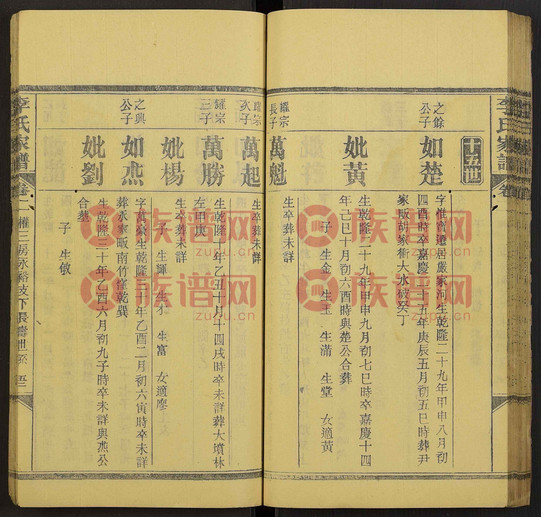 李氏家譜
十五世
之餘公子
如楚
字惟寶遷居嚴家河生乾隆二十九年甲申八月初
四酉時卒嘉慶二十五年庚辰五月初五巳時葬尹
家畈胡家衝大水被癸丁
妣黃
生乾隆二十九年甲申九月初七巳時卒嘉慶十四
年己巳十月初六酉時與楚公合葬
子 生金 生玉 生滿 生堂 女適黃
耀宗長子
萬魁
生卒葬未詳
耀宗次子
萬起
生卒葬未詳
耀宗三子
萬勝
生乾隆十年乙丑十月十四戌時卒未詳葬大墳林
左甲庚
妣楊
生卒葬未詳
子 生輝 生 生富 女適廖
之興公子
如燕
字萬 生乾隆三十年乙酉二月初六寅時卒未詳
葬永家畈南竹 乾巽
妣劉
生乾隆三十年乙酉六月初九子時卒未詳與燕公
合葬
子 生敏
李氏家譜 卷二 權三房永裕支下長壽世系
族譜网
zupu.cn
族譜网
zupu.cn
族譜网
zupu.cn
族譜网
zupu.cn